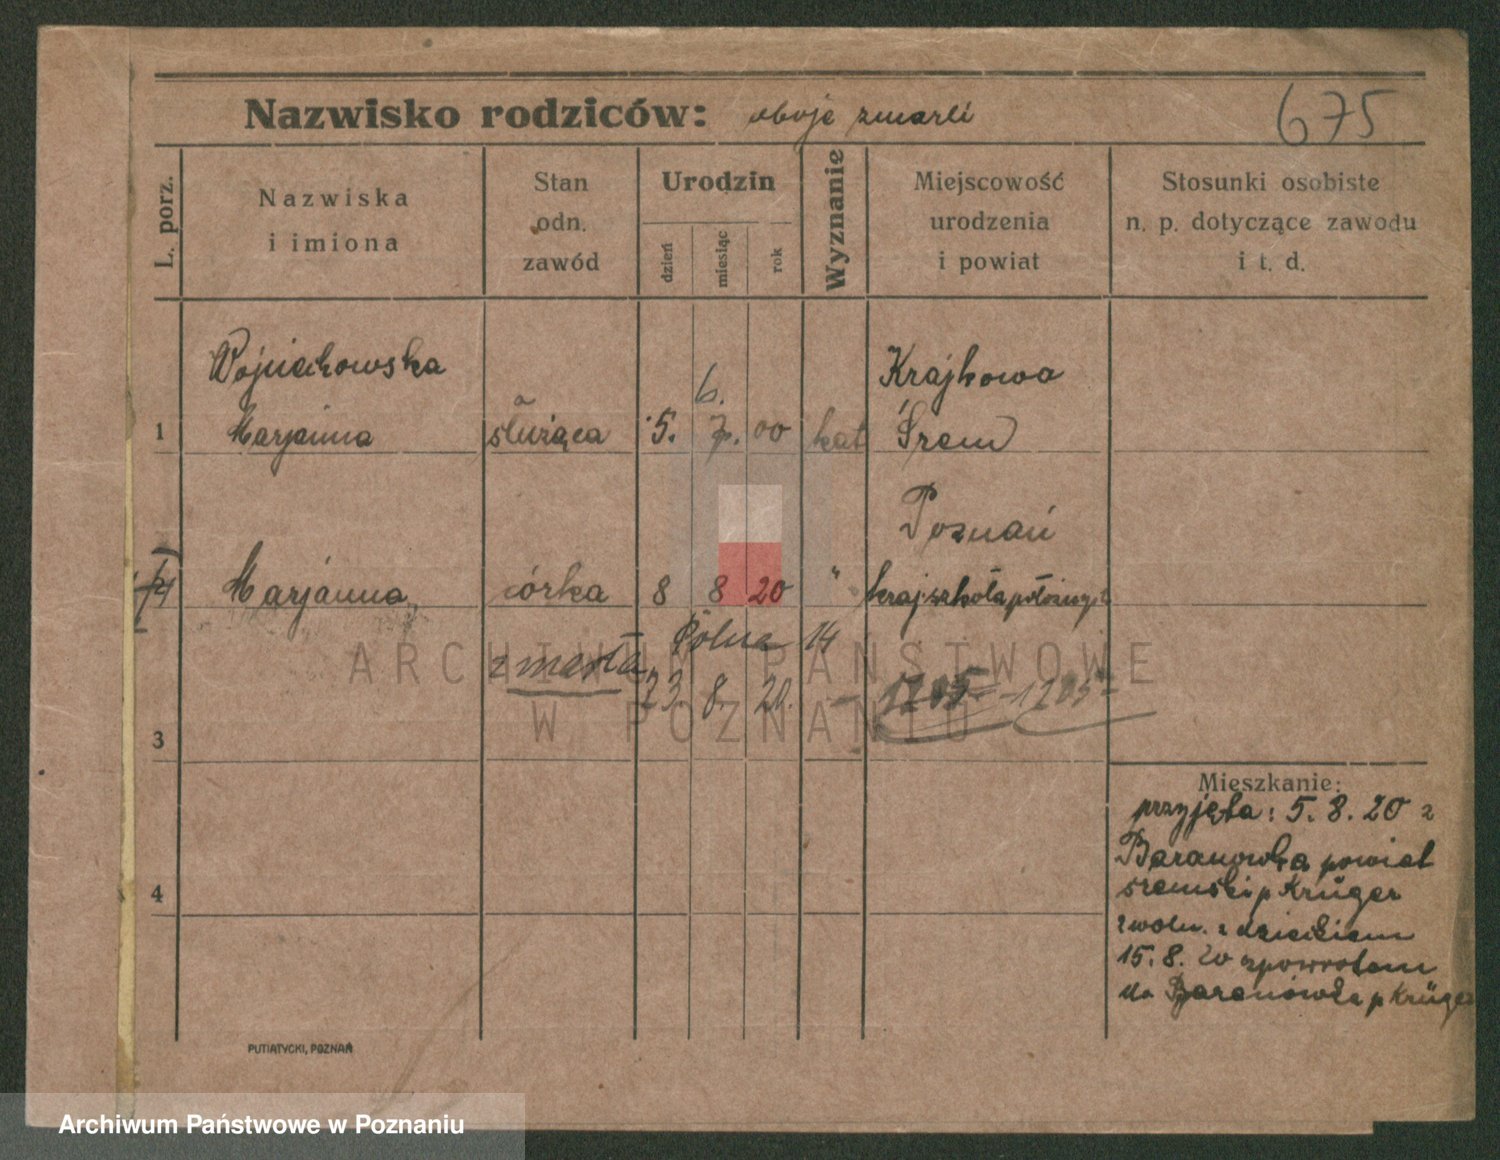 Nazwisko rodziców: oboje zmarli
675
L. porz.
Nazwiska
i imiona
Stan
odn.
zawód
Urodzin
dzień
miesiąc
rok
Wyznanie
Miejscowość
urodzenia
i powiat
Stosunki osobiste
n. p. dotyczące zawodu
i t. d.
Wojciechowska
Krajkowo
6.
1 Marjanna służąca 5. 7. 00 kat Śrem
Poznań
Marjanna córka 8 8 20 " kraj. szkoła położnych
Polna 14
zmarła 23. 8. 20. – 1205 – 1205
3
4
Mieszkanie:
przyjęta: 5. 8. 20 z
Baranówka powiat
śremski p Krüger
zwoln. z dzieckiem
15. 8. 20 zpowrotem
do Baranówka p Krüger
PUTIATYCKI, POZNAŃ
ARCHIWUM PAŃSTWOWE
W POZNANIU
Archiwum Państwowe w Poznaniu